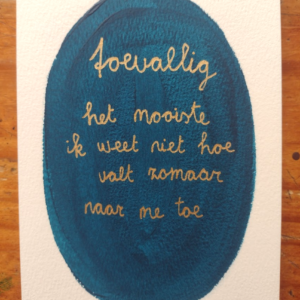 toevallig
het mooiste
ik weet niet hoe
valt zomaar
naar me toe